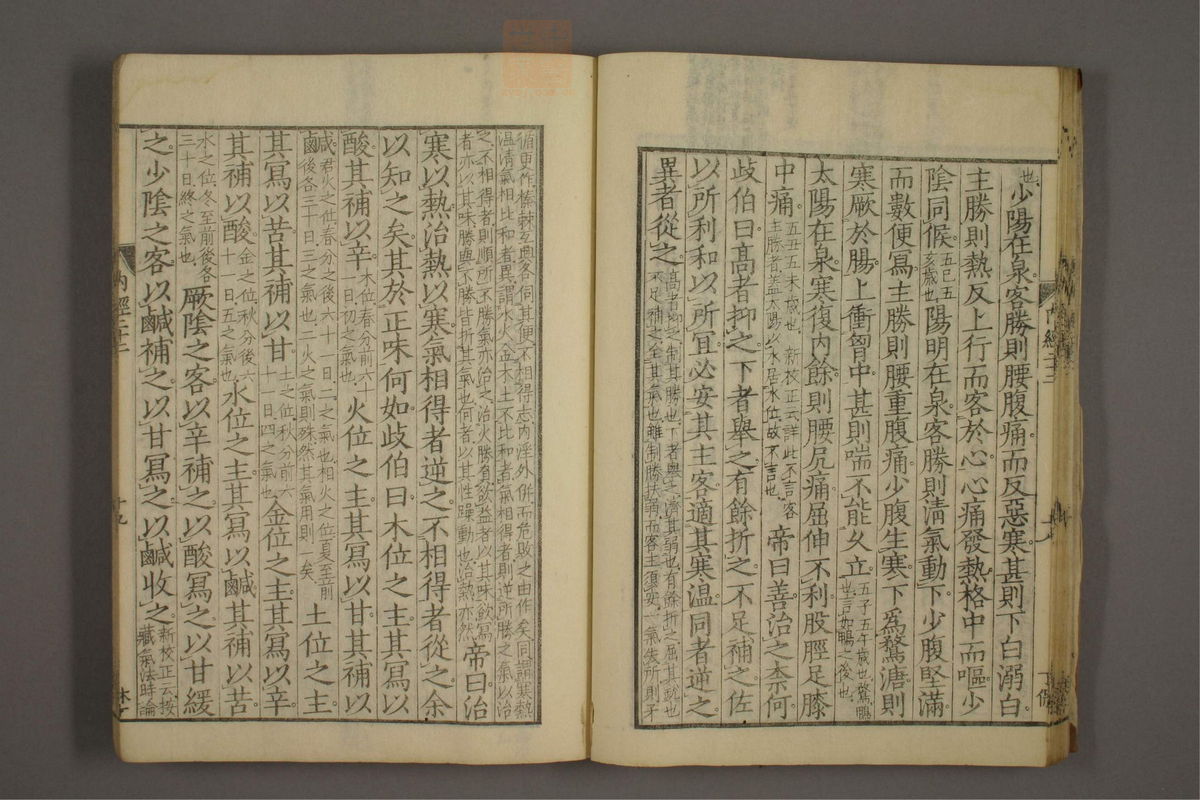 也少陽在泉客勝則腰腹痛而反惡寒甚則下白溺白
主勝則熱反上行而客於心心痛發熱格中而嘔少
陰同候五巳五亥歲也陽明在泉客勝則清氣動下少腹堅滿
而數便寫主勝則腰重腹痛少腹生寒下爲鶩溏則
寒厥於腸上衝胷中甚則喘不能久立五子五午歲也鶩鴨也言如鴨之後也
太陽在泉寒復內餘則腰尻痛屈伸不利股脛足膝
中痛五丑五未歲也新校正云詳此不言客主勝者蓋太陽以水居水位故不言也帝曰善治之柰何
歧伯曰髙者抑之下者舉之有餘折之不足補之佐
以所利和以所冝必安其主客適其寒温同者逆之
異者從之髙者抑之制其勝也下者舉之濟其弱也有餘折之屈其銳也不足補之全其氣也雖制勝扶弱而客主須安一氣失所則矛
循更作榛棘互興各伺其便不相得志內淫外併而危敗之由作矣同謂寒熱温清氣相比和者異謂水火金木土不比和者氣相得者則逆所勝之氣以治
之不相得者則順所不勝氣亦治之治火勝負欲益者以其味欲寫者亦以其味勝與不勝皆折其氣也何者以其性躁動也治熱亦然帝曰治
寒以熱治熱以寒氣相得者逆之不相得者從之余
以知之矣其於正味何如歧伯曰木位之主其寫以
酸其補以辛木位春分前六十一日初之氣也火位之主其寫以甘其補以
鹹君火之位春分之後六十一日二之氣也相火之位夏至前後各三十日三之氣也二火之氣則殊然其氣用則一矣土位之主
其寫以苦其補以甘土之位秋分前六十一日四之氣也金位之主其寫以辛
其補以酸金之位秋分後六十一日五之氣也水位之主其寫以鹹其補以苦
水之位冬至前後各三十日終之氣也厥陰之客以辛補之以酸寫之以甘緩
之少陰之客以鹹補之以甘寫之以鹹收之新校正云按藏氣法時論
內經二十二
十九